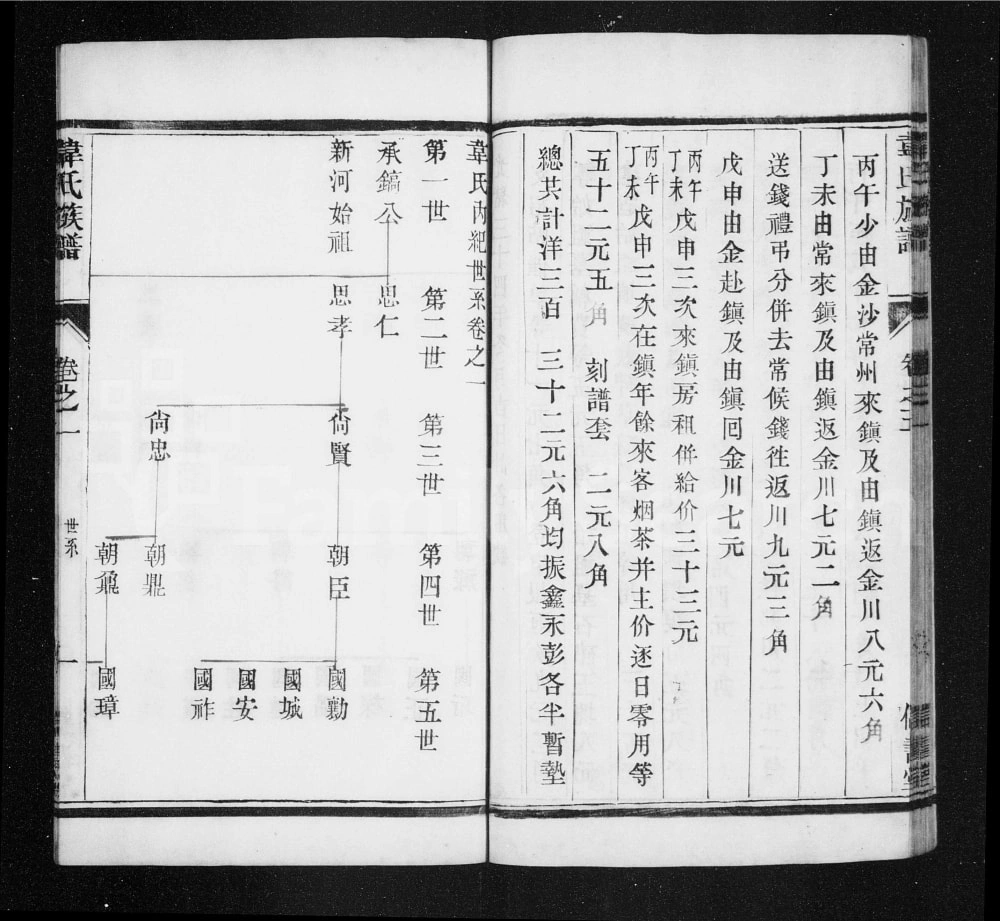 韋氏族譜
卷之三
丙午少由金沙常州來鎮及由鎮返金川八元六角
丁未由常來鎮及由鎮返金川七元二角
送錢禮弔分併去常候錢徃返川九元三角
戊申由金赴鎮及由鎮囘金川七元
丙午丁未戊申三次來鎮房租併給价三十三元
丙午丁未戊申三次在鎮年餘來客烟茶并主价逐日零用等
五十二元五角 刻譜套 二元八角
總共計洋三百 三十二元六角均振鑫永彭各半暫墊
韋氏丙紀世系卷之一
第一世 第二世 第三世 第四世 第五世
承鎬公 思仁
新河始祖 思孝 尙賢 朝臣 國勷
國城
國安
國祚
尙忠 朝鼎
朝鼐 國璋
韋氏族譜 卷之一 世系 一